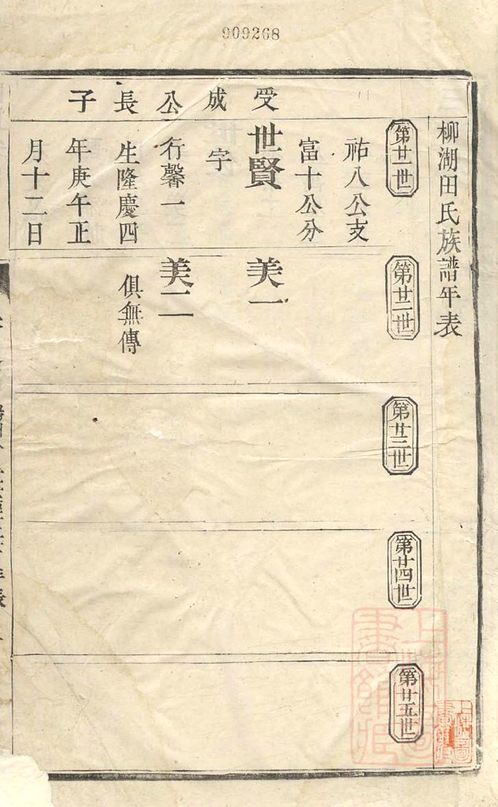 909268
柳湖田氏族譜年表
受成公長子
第廿一世
祐八公支
富十公分
世賢
字
行馨一
生隆慶四
年庚午正
月十二日
第廿二世
美一
美二
俱無傳
第廿三世
第廿四世
第廿五世